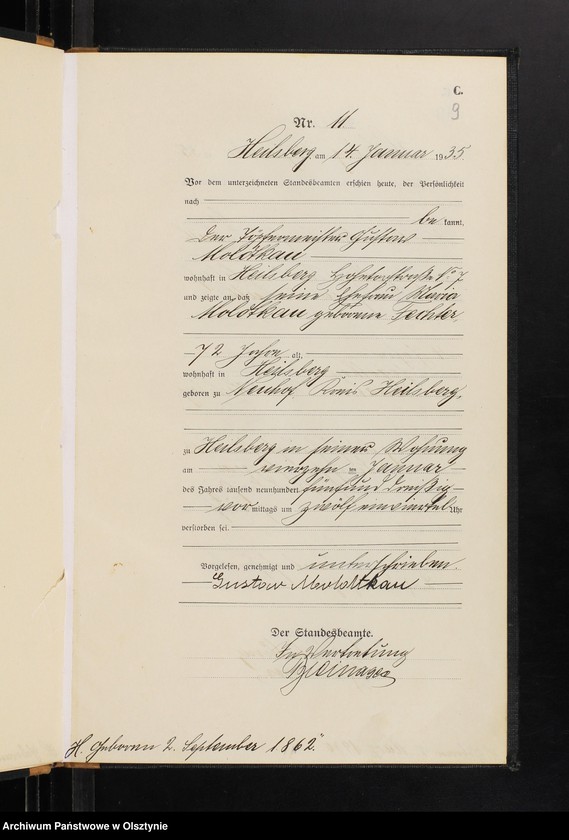 C.
9
Nr. 11
Heilsberg am 14. Januar 1935.
Vor dem unterzeichneten Standesbeamten erschien heute, der Persönlichkeit
nach
bekannt,
der Töpfermeister Gustav
Molottkau
wohnhaft in Heilsberg
und zeigte an, daß seine Ehefrau Maria
Molottkau geborene Fechter,
72 Jahre alt,
wohnhaft in Heilsberg
geboren zu Neuhof Kreis Heilsberg,
zu Heilsberg in seiner Wohnung
am vierzehn ten Januar
des Jahres tausend neunhundert fünfunddreißig
vor mittags um zwölf einviertel Uhr
verstorben sei.
Vorgelesen, genehmigt und unterschrieben
Gustav Molottkau
Der Standesbeamte.
In Vertretung
H. Geboren 2. September 1862"
Archiwum Państwowe w Olsztynie